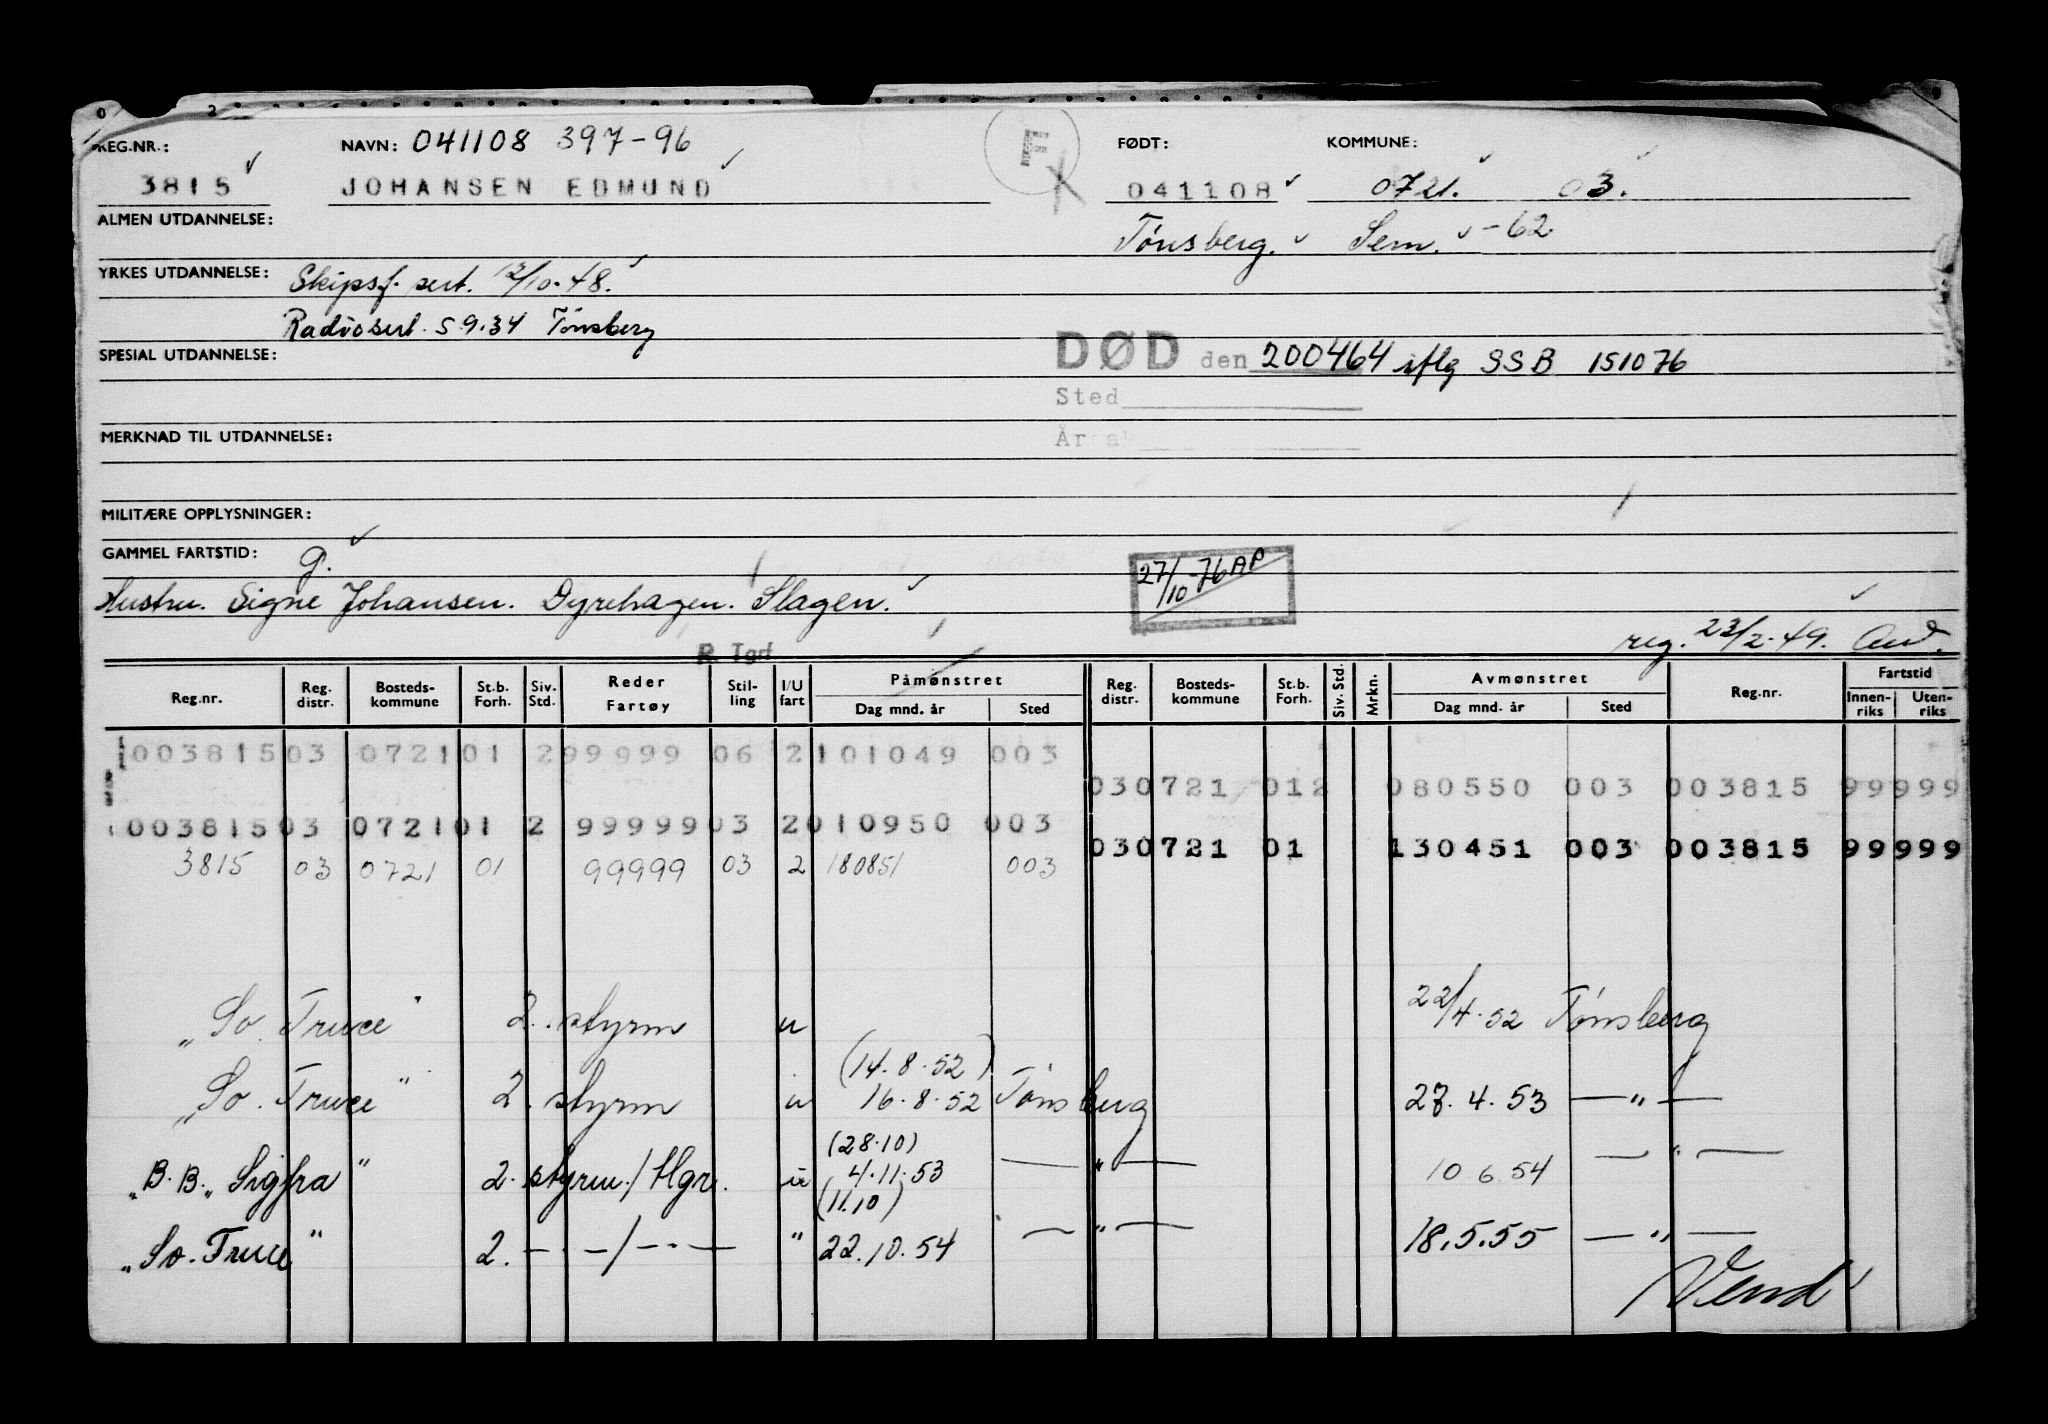 REG.NR.: NAVN: 041108 397-96 F FØDT: KOMMUNE:
3815 JOHANSEN EDMUND 041108 0721. 03.
ALMEN UTDANNELSE: Tønsberg. Sem. -62
YRKES UTDANNELSE: Skipsf. sert. 12/10-48.
Radiosert. 5 9.34 Tønsberg
SPESIAL UTDANNELSE: DØD den 200464 iflg SSB 151076
Sted
MERKNAD TIL UTDANNELSE: År
MILITÆRE OPPLYSNINGER:
GAMMEL FARTSTID: g.
27/10-76 AP
Hustru. Signe Johansen. Dyrehagen. Slagen.
reg. 23/2-49.
R Tgrf
Reg.nr. Reg. distr. Bosteds-kommune St.b. Forh. Siv. Std. Reder Fartøy Stil-ling I/U fart Påmønstret Dag mnd. år Sted Reg. distr. Bosteds-kommune St.b. Forh. Siv. Std. Mrkn. Avmønstret Dag mnd. år Sted Reg.nr. Fartstid Innen-riks Uten-riks
003815 03 0721 01 2 99999 06 2 101049 003
03 0721 01 2 080550 003 003815 99999
003815 03 0721 01 2 99999 03 2 010950 003
03 0721 01 130451 003 003815 99999
3815 03 0721 01 99999 03 2 180851 003
"So. Truce" 2. styrm u 22/4-52 Tønsberg
(14.8.52)
"So. Truce" 2. styrm u 16.8.52 Tønsberg 27.4.53 — " —
(28.10)
"B.B. „Sigfra" 2. styrm./Hgr. u 4.11.53 — " — 10.6.54 — " —
(11.10)
"So. Truce" 2. — " — / — " — " 22.10.54 — " — 18.5.55 — " —
Vend